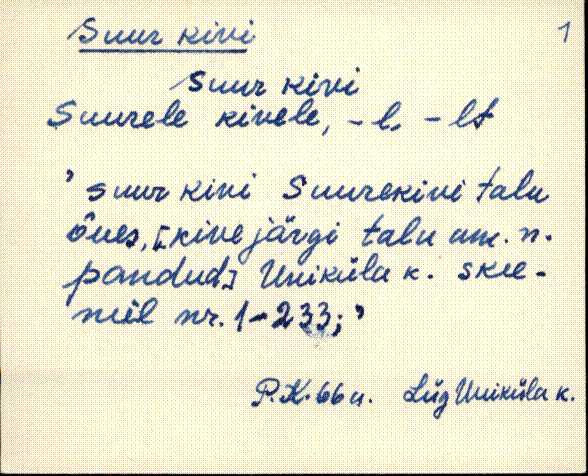 Suur kivi 1
Suur kivi
Suurele kivele, -l, -lt
’suur kivi Suurekivi talu
õues, [kive järgi talu um. n.
pandud] Uniküla k. skee-
mil nr. 1-233;’
P.K. 66 a. Lüg Uniküla k.